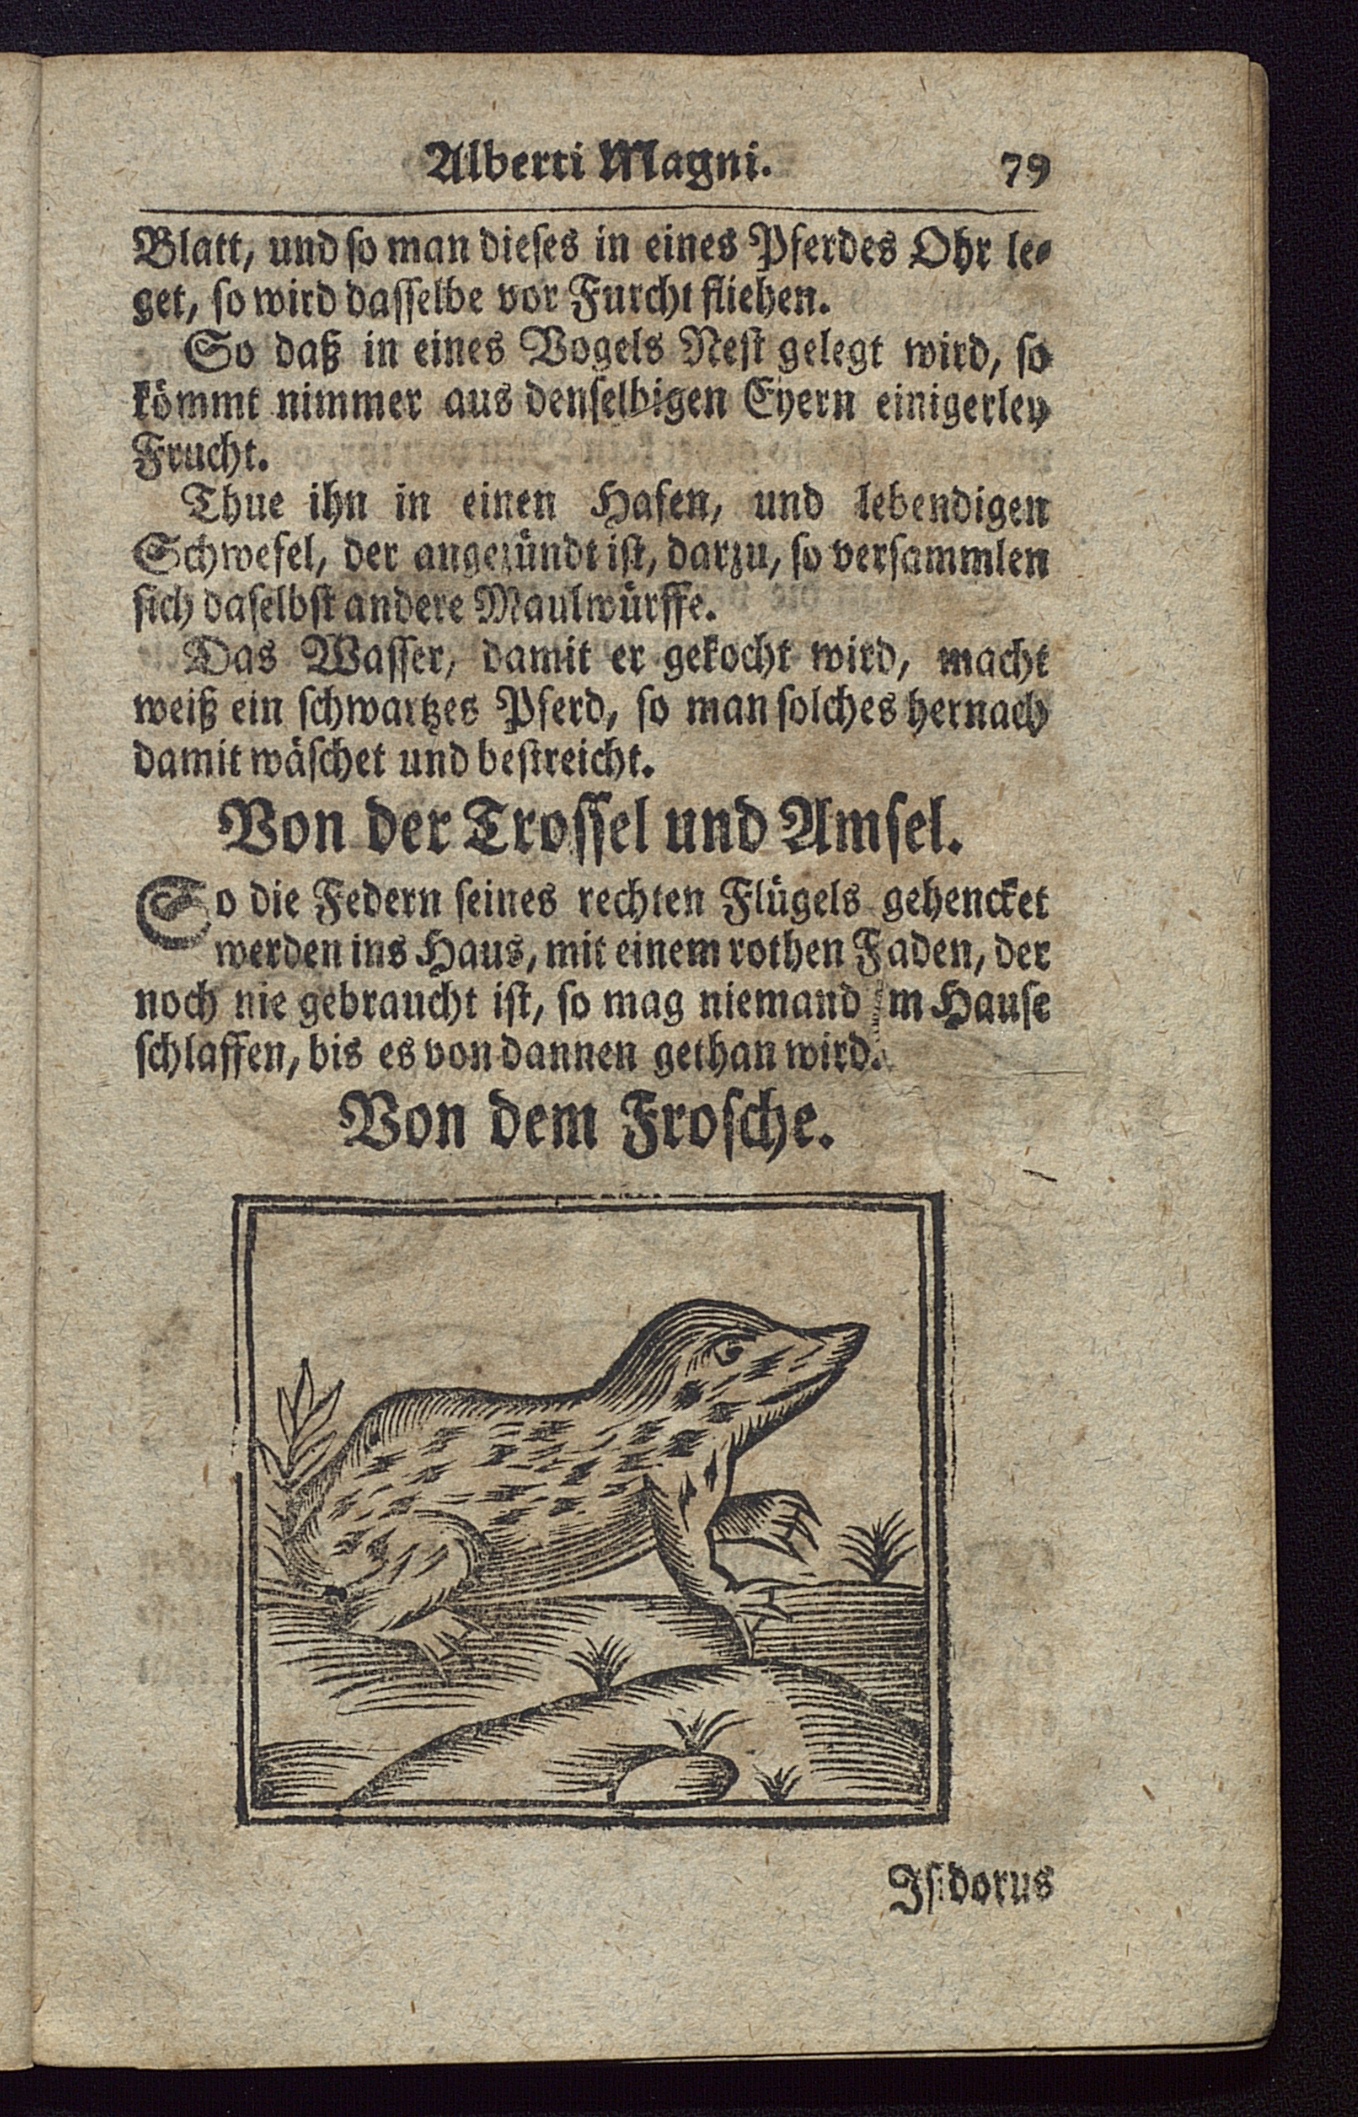 Alberti Magni. 79
Blatt, und so man dieses in eines Pferdes Ohr le-
get, so wird dasselbe vor Furcht fliehen.
So daß in eines Vogels Nest gelegt wird, so
kömmt nimmer aus denselbigen Eyern einigerley
Frucht.
Thue ihn in einen Hafen, und lebendigen
Schwefel, der angezündt ist, darzu, so versammlen
sich daselbst andere Maulwürffe.
Das Wasser, damit er gekocht wird, macht
weiß ein schwartzes Pferd, so man solches hernach
damit wäschet und bestreicht.
Von der Trossel und Amsel.
So die Federn seines rechten Flügels gehencket
werden ins Haus, mit einem rothen Faden, der
noch nie gebraucht ist, so mag niemand im Hause
schlaffen, bis es von dannen gethan wird.
Von dem Frosche.
Isidorus